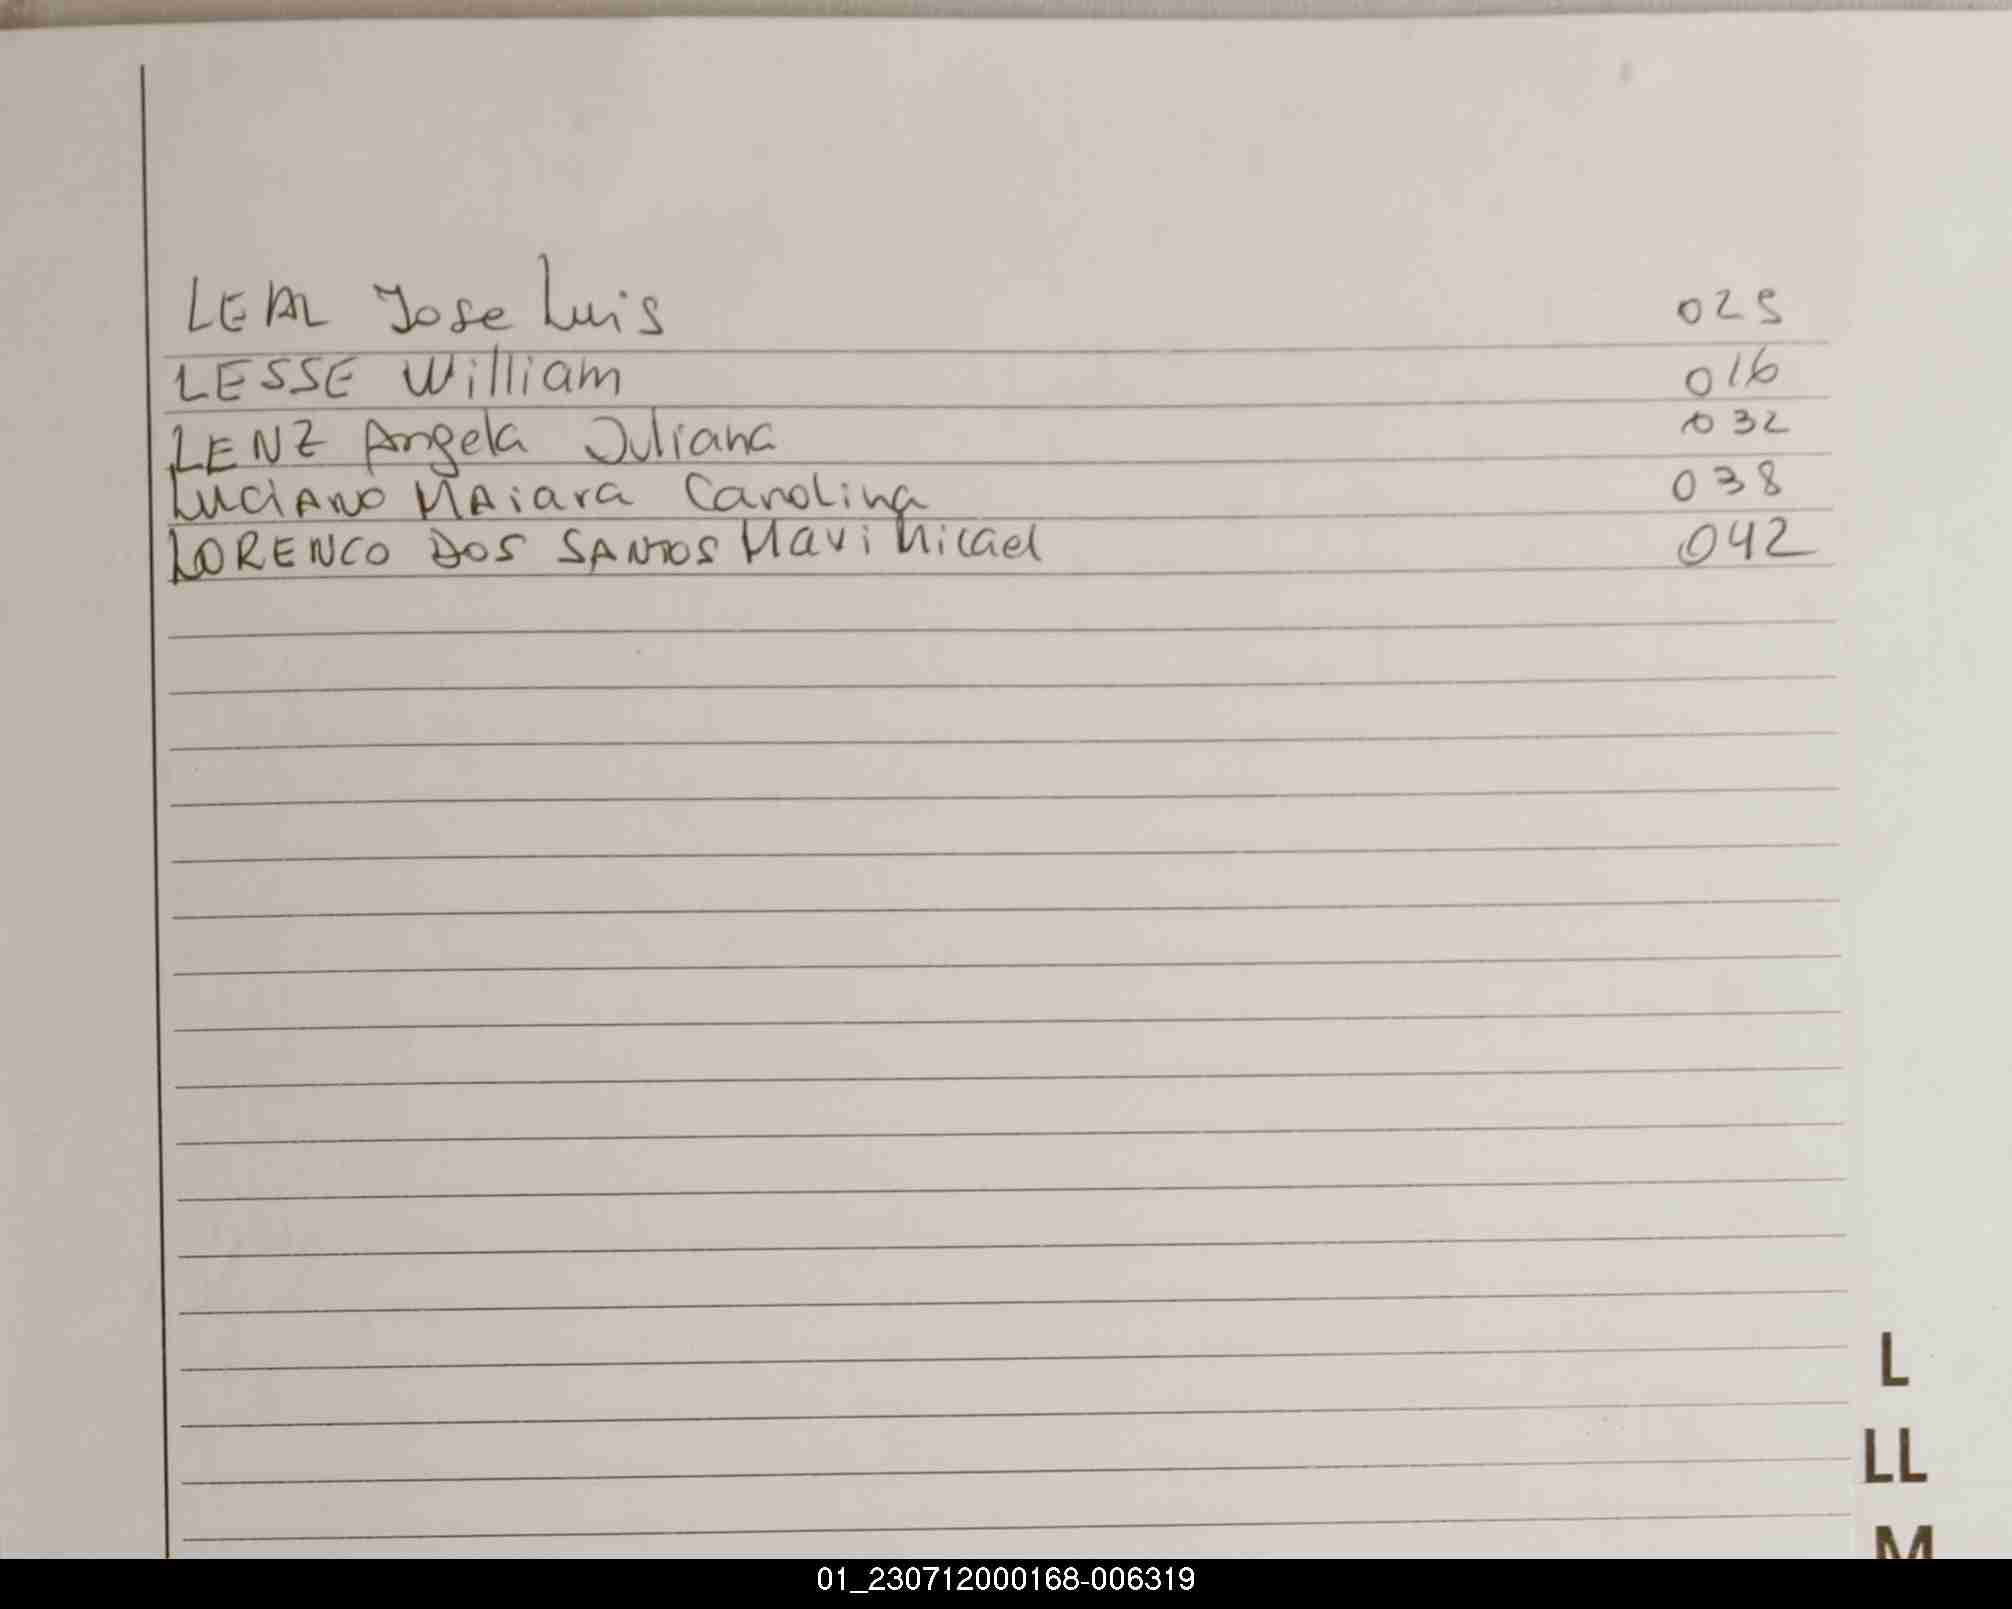 LEAL Jose Luis 025
LESSE William 016
LENZ Angela Juliana 032
LUCIANO MAiara Carolina 038
LORENCO DOS SANTOS Mavi Micael 042
L
LL
M
01_230712000168-006319